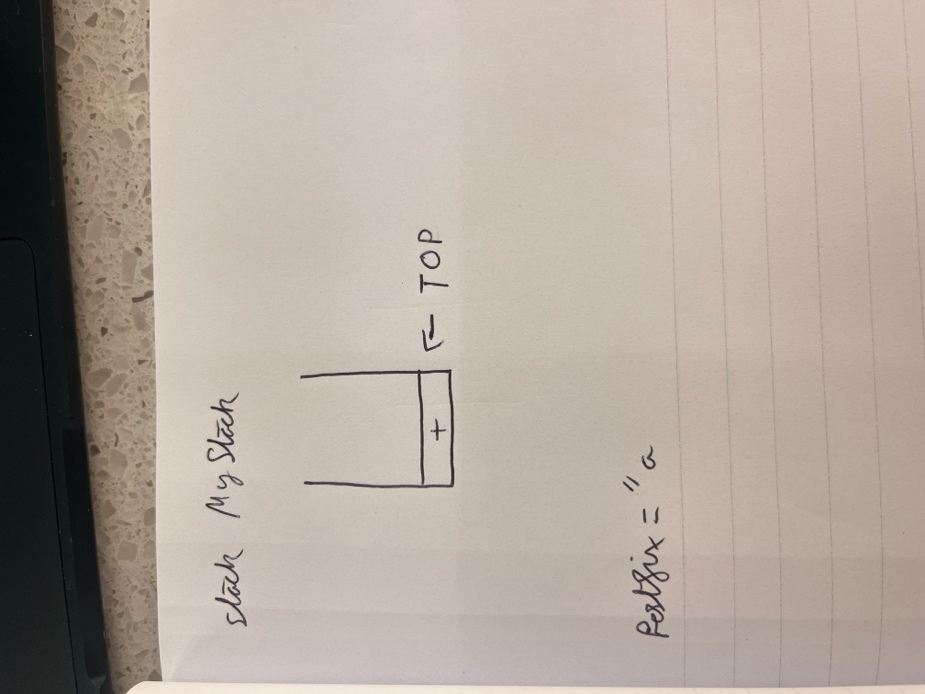 Stack My Stack
+ ← TOP
Postfix = " a